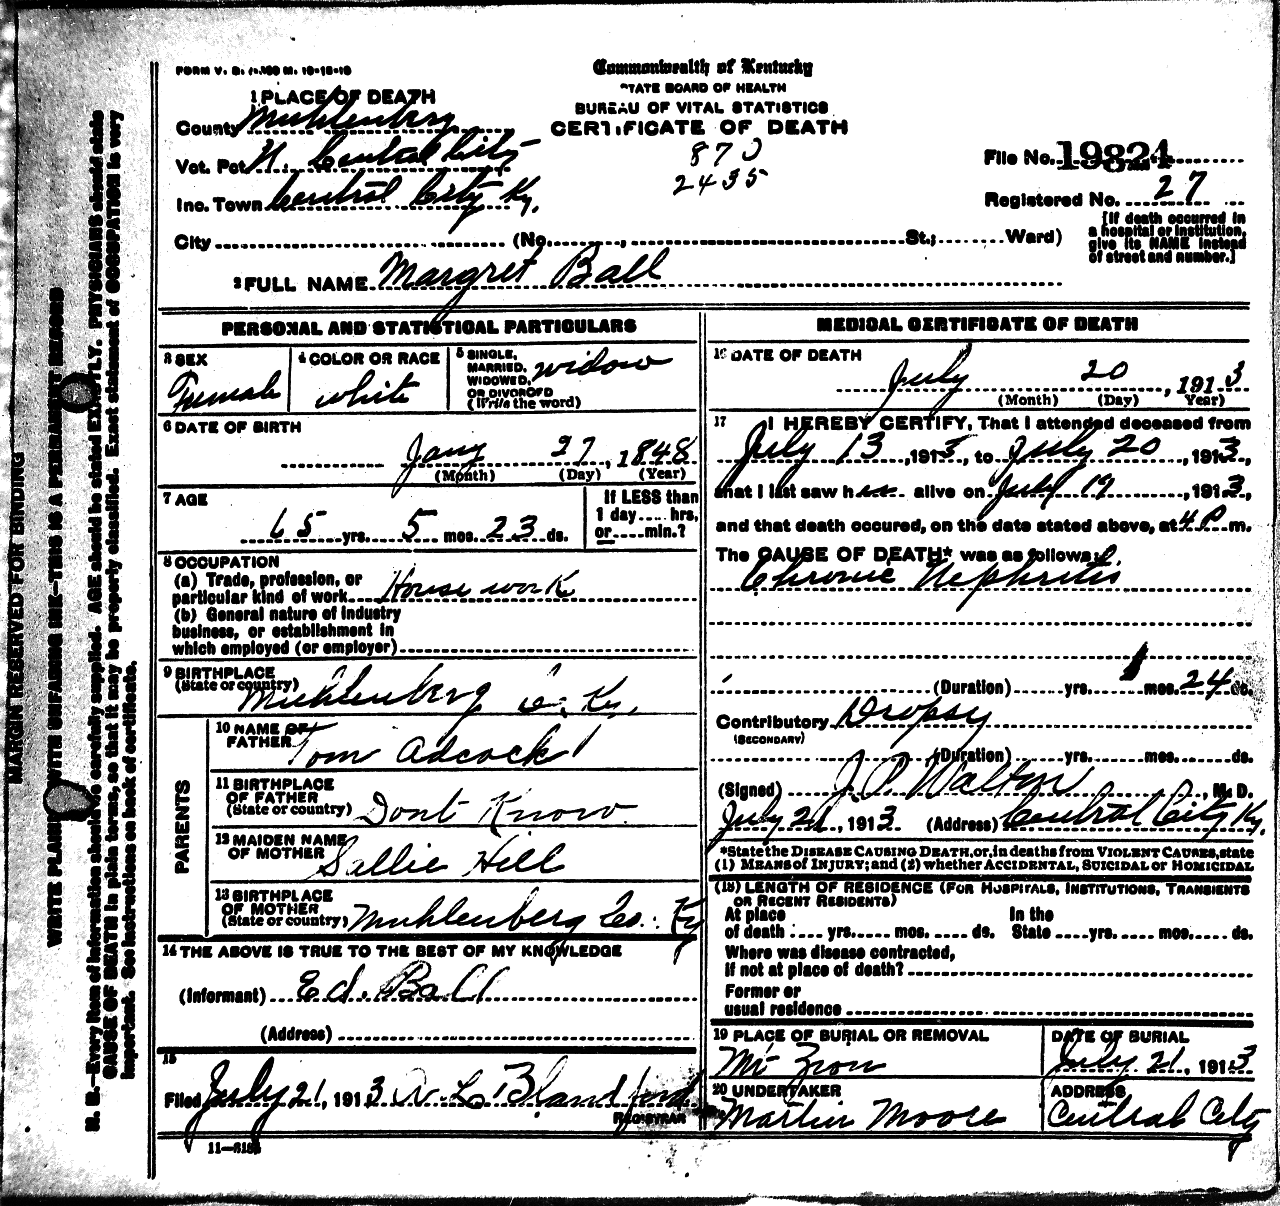 FORM V. S. 1-150 M. 10-15-10
Commonwealth of Kentucky
STATE BOARD OF HEALTH
BUREAU OF VITAL STATISTICS
CERTIFICATE OF DEATH
1 PLACE OF DEATH
County Muhlenberg
Vot. Pct N. Central City
Inc. Town Central City Ky.
City (No. , St.; Ward)
870
2435
File No. 19824
Registered No. 27
[If death occurred in
a hospital or institution,
give its NAME instead
of street and number.]
2 FULL NAME Margret Ball
PERSONAL AND STATISTICAL PARTICULARS
3 SEX
Female
4 COLOR OR RACE
white
5 SINGLE,
MARRIED,
WIDOWED,
OR DIVORCED
(Write the word)
widow
6 DATE OF BIRTH
Jany 27, 1848
(Month) (Day) (Year)
7 AGE
65 yrs. 5 mos. 23 ds.
If LESS than
1 day .... hrs.
or .... min.?
8 OCCUPATION
(a) Trade, profession, or
particular kind of work House work
(b) General nature of industry
business, or establishment in
which employed (or employer)
9 BIRTHPLACE
(State or country)
Muhlenberg Co. Ky.
PARENTS
10 NAME OF
FATHER
Tom Adcock
11 BIRTHPLACE
OF FATHER
(State or country)
Dont Know
12 MAIDEN NAME
OF MOTHER
Sallie Hill
13 BIRTHPLACE
OF MOTHER
(State or country) Muhlenberg Co. Ky
14 THE ABOVE IS TRUE TO THE BEST OF MY KNOWLEDGE
(Informant) Ed. Ball
(Address)
15
Filed July 21, 1913 L Blandford
REGISTRAR
11—3184
MEDICAL CERTIFICATE OF DEATH
16 DATE OF DEATH
July 20, 1913
(Month) (Day) Year)
17 I HEREBY CERTIFY, That I attended deceased from
July 13, 1913, to July 20, 1913,
that I last saw her alive on July 19, 1913,
and that death occured, on the date stated above, at 4 P m.
The CAUSE OF DEATH* was as follows:
Chronic Nephritis
(Duration) yrs. 1 mos. 24 ds.
Contributory Dropsy
(SECONDARY)
(Duration) yrs. mos. ds.
(Signed) J. P. Walton, M. D.
July 21, 1913 (Address) Central City Ky.
*State the DISEASE CAUSING DEATH, or, in deaths from VIOLENT CAUSES, state
(1) MEANS OF INJURY; and (2) whether ACCIDENTAL, SUICIDAL OR HOMICIDAL
(18) LENGTH OF RESIDENCE (FOR HOSPITALS, INSTITUTIONS, TRANSIENTS
OR RECENT RESIDENTS)
At place
of death .... yrs. .... mos. .... ds.
In the
State .... yrs. .... mos. .... ds.
Where was disease contracted,
if not at place of death?
Former or
usual residence
19 PLACE OF BURIAL OR REMOVAL
Mt Zion
DATE OF BURIAL
July 21, 1913
20 UNDERTAKER
Martin Moore
ADDRESS
Central City
MARGIN RESERVED FOR BINDING
WRITE PLAINLY WITH UNFADING INK—THIS IS A PERMANENT RECORD
N. B.—Every item of information should be carefully supplied. AGE should be stated EXACTLY. PHYSICIANS should state
CAUSE OF DEATH in plain terms, so that it may be properly classified. Exact statement of OCCUPATION is very
important. See instructions on back of certificate.